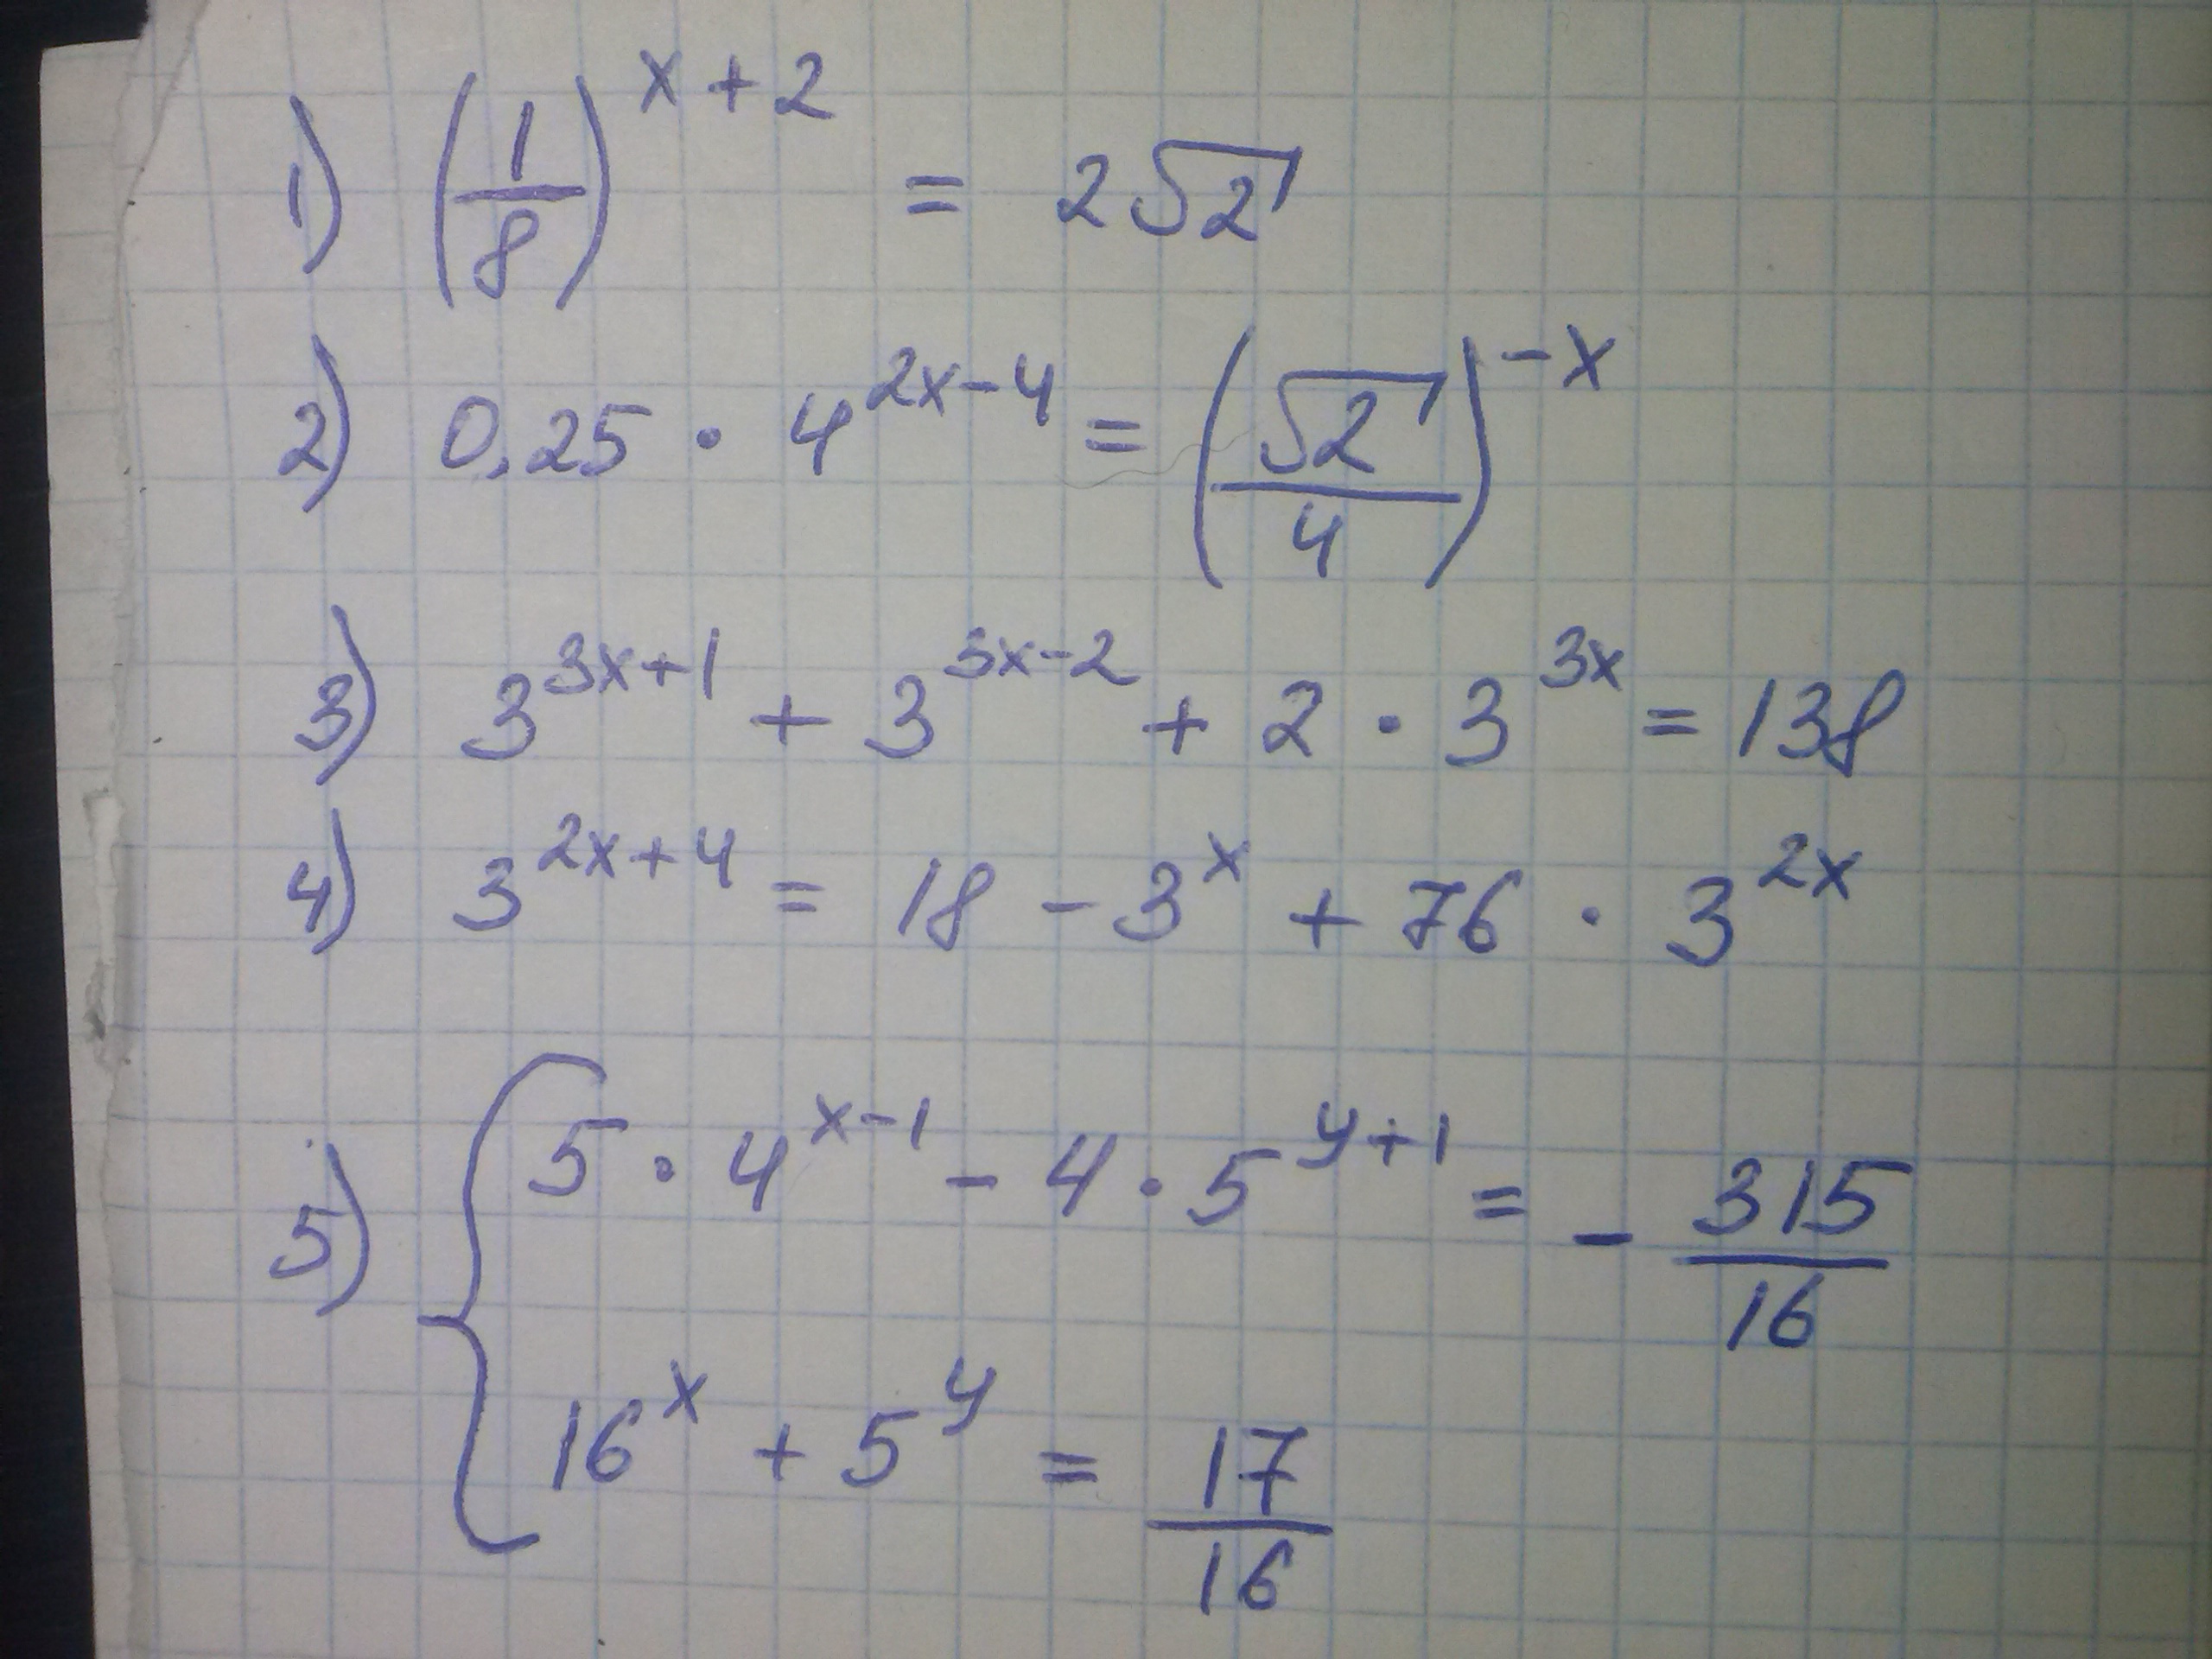 1) (1/8)^(x+2) = 2√2
2) 0,25 · 4^(2x-4) = (√2/4)^(-x)
3) 3^(3x+1) + 3^(3x-2) + 2 · 3^(3x) = 138
4) 3^(2x+4) = 18 - 3^x + 76 · 3^(2x)
5) { 5 · 4^(x-1) - 4 · 5^(y+1) = - 315/16
16^x + 5^y = 17/16